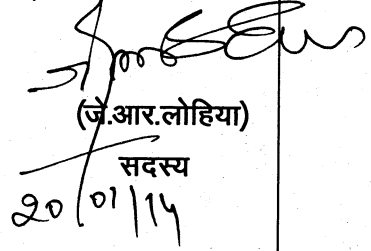 (जे.आर.लोहिया)
सदस्य
20/01/14